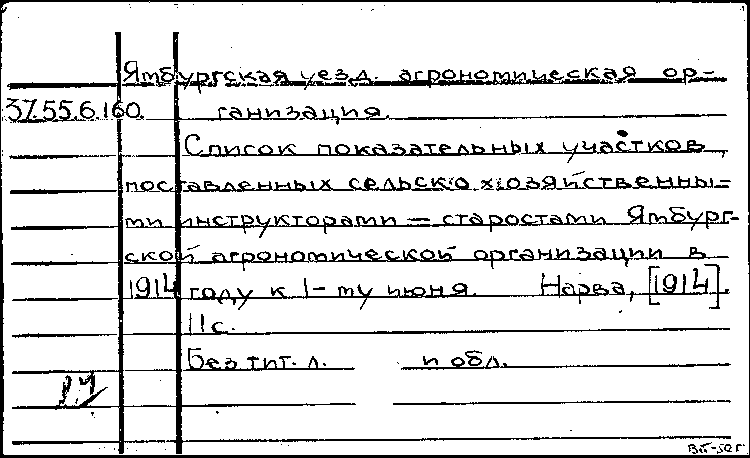 Ямбургская уезд. агрономическая ор-
37.55.6.160. ганизация.
Список показательных участков,
поставленных сельско хозяйственны-
ми инструкторами — старостами Ямбург-
ской агрономической организации в
1914 году к 1-му июня. Нарва, [1914].
11с.
Без тит. л. и обл.